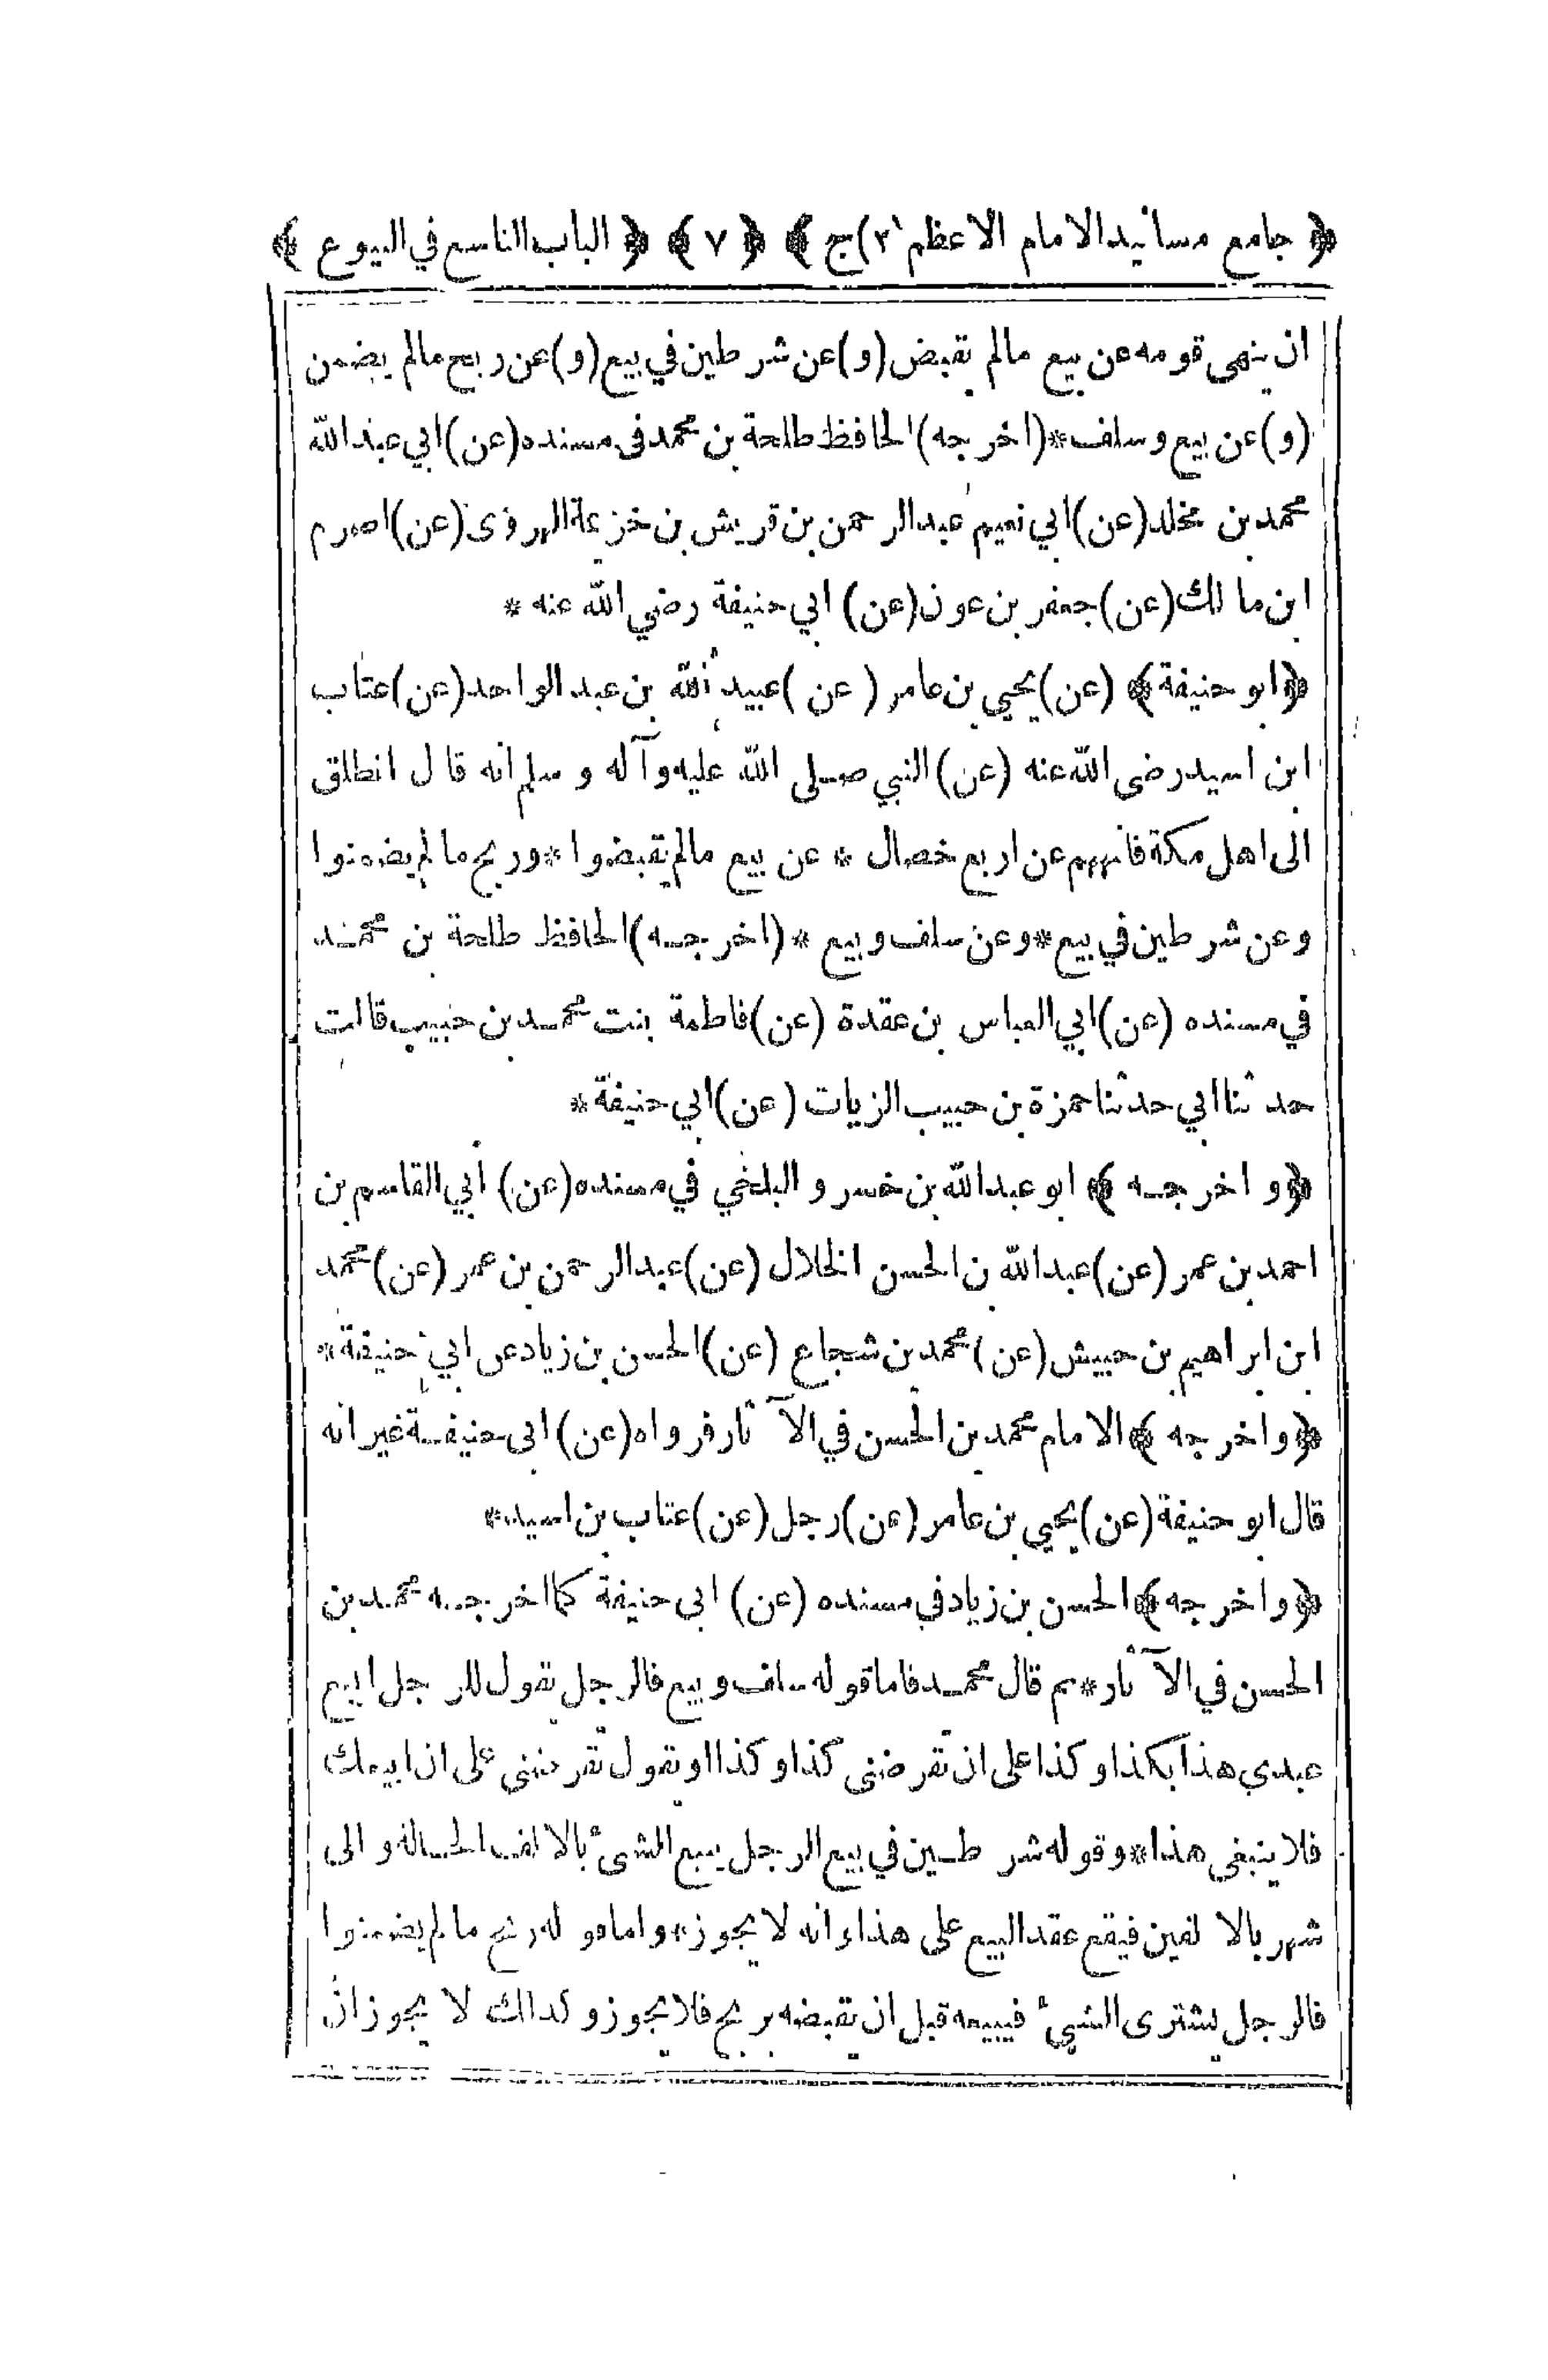 ﴿ جامع مسانيد الامام الاعظم ٢)ج ﴾ ﴿ ٧ ﴾ ﴿ الباب التاسع في البيوع ﴾
ان ينهى قومه عن بيع مالم يقبض (و)عن شرطين في بيع (و)عن ربح مالم يضمن
(و)عن بيع وسلف *(اخرجه) الحافظ طلحة بن محمد فى مسنده (عن) ابي عبد الله
محمد بن مخلد (عن) ابي نعيم عبد الرحمن بن قريش بن خزيمة الهروى (عن) اصرم
ابن مالك (عن) جعفر بن عون (عن) ابي حنيفة رضي الله عنه *
﴿ابو حنيفة﴾ (عن) يحيى بن عامر (عن) عبيد الله بن عبد الواحد (عن) عتاب
ابن اسيد رضى الله عنه (عن) النبي صلى الله عليه وآله وسلم انه قال انطلق
الى اهل مكة فانههم عن اربع خصال * عن بيع مالم يقبضوا * وربح مالم يضمنوا
وعن شرطين في بيع * وعن سلف وبيع * (اخرجه) الحافظ طلحة بن محمد
في مسنده (عن) ابي العباس بن عقدة (عن) فاطمة بنت محمد بن حبيب قالت
حدثنا ابي حدثنا حمزة بن حبيب الزيات (عن) ابي حنيفة *
﴿واخرجه﴾ ابو عبد الله بن خسرو البلخي في مسنده (عن) أبي القاسم بن
احمد بن عمر (عن) عبد الله بن الحسن الخلال (عن) عبد الرحمن بن عمر (عن) محمد
ابن ابراهيم بن حبيش (عن) محمد بن شجاع (عن) الحسن بن زياد عن ابي حنيفة *
﴿واخرجه﴾ الامام محمد بن الحسن في الآثار فرواه (عن) ابى حنيفة غير انه
قال ابو حنيفة (عن) يحيى بن عامر (عن) رجل (عن) عتاب بن اسيد *
﴿واخرجه﴾ الحسن بن زياد في مسنده (عن) ابى حنيفة كما اخرجه محمد بن
الحسن في الآثار * ثم قال محمد فاما قوله سلف وبيع فالرجل يقول للرجل ابيع
عبدي هذا بكذا وكذا على ان تقرضنى كذا وكذا او يقول تقرضنى على ان ابيعك
فلا ينبغى هذا * وقوله شرطين في بيع الرجل يبيع الشئ بالالف الحالة والى
شهر بالالفين فيقع عقد البيع على هذا وانه لا يجوز * واما قوله ربح مالم يضمنوا
فالرجل يشترى الشئ فيبيعه قبل ان يقبضه بربح فلا يجوز وكذلك لا يجوز ان